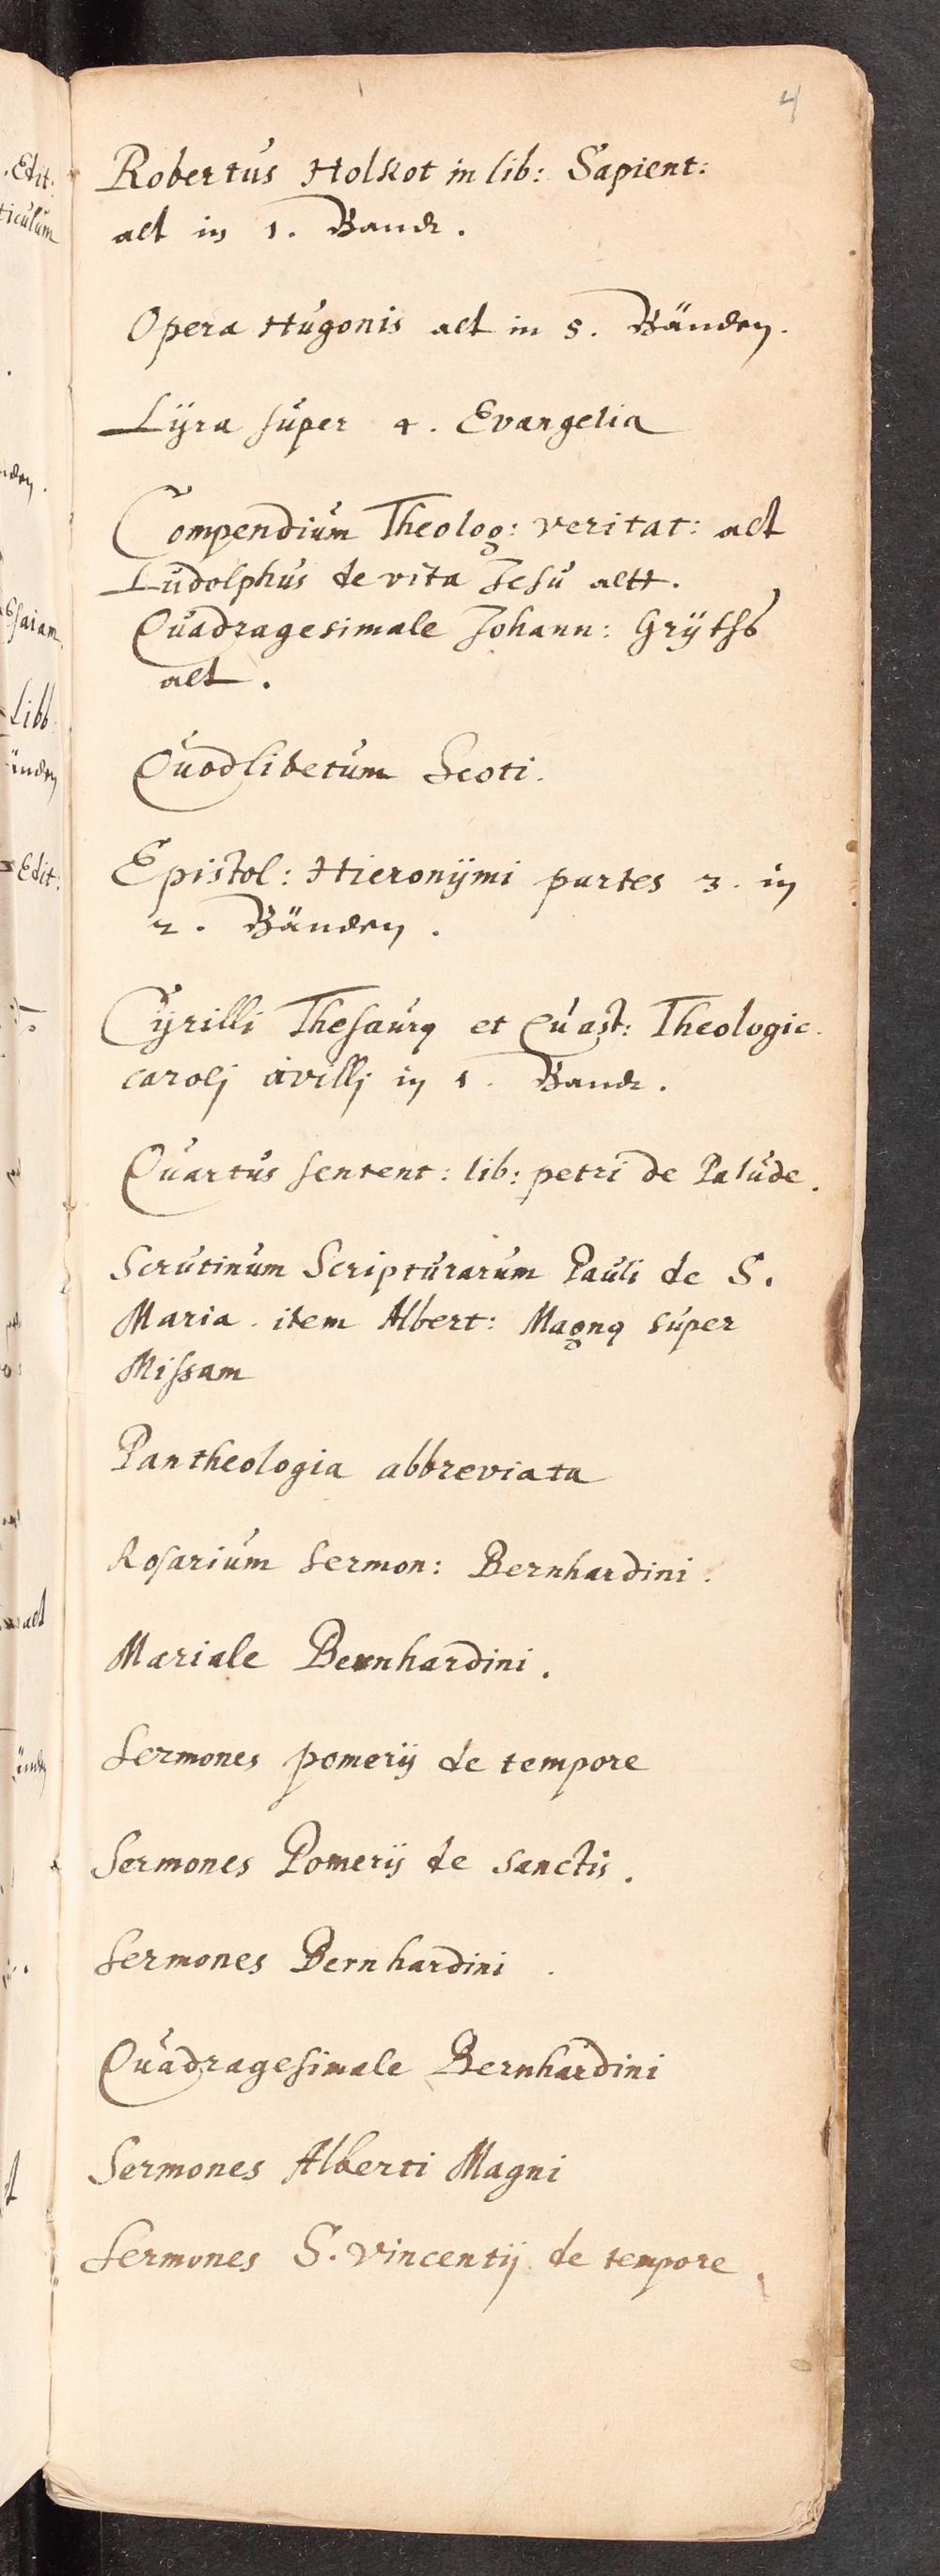 4
Robertus Holkot in lib: Sapient:
alt in 1. Bandt.
Opera Hugonis alt in 5. Bänden.
Lÿra super 4. Evangelia
Compendium Theolog: veritat: alt
Ludolphus de vita Jesu altt.
Quadragesimale Johann: Grÿthß
alt.
Quodlibetum Scoti.
Epistol: Hieronÿmi partes 3. in
2. Bänden.
Cÿrilli Thesaurq et Quæst: Theologic.
carolj avillj in 1. Bandt.
Quartus sentent: lib: petri de Palude.
Scrutinum Scripturarum Pauli de S.
Maria. item Albert: Magnq super
Missam
Pantheologia abbreviata
Rosarium sermon: Bernhardini.
Mariale Bernhardini.
Sermones pomerij de tempore
Sermones Pomerij de sanctis.
Sermones Bernhardini.
Quadragesimale Bernhardini
Sermones Alberti Magni
Sermones S. vincentij de tempore.
Edit:
ticulum
Esaiam
Libb:
änden
Edit:
alt